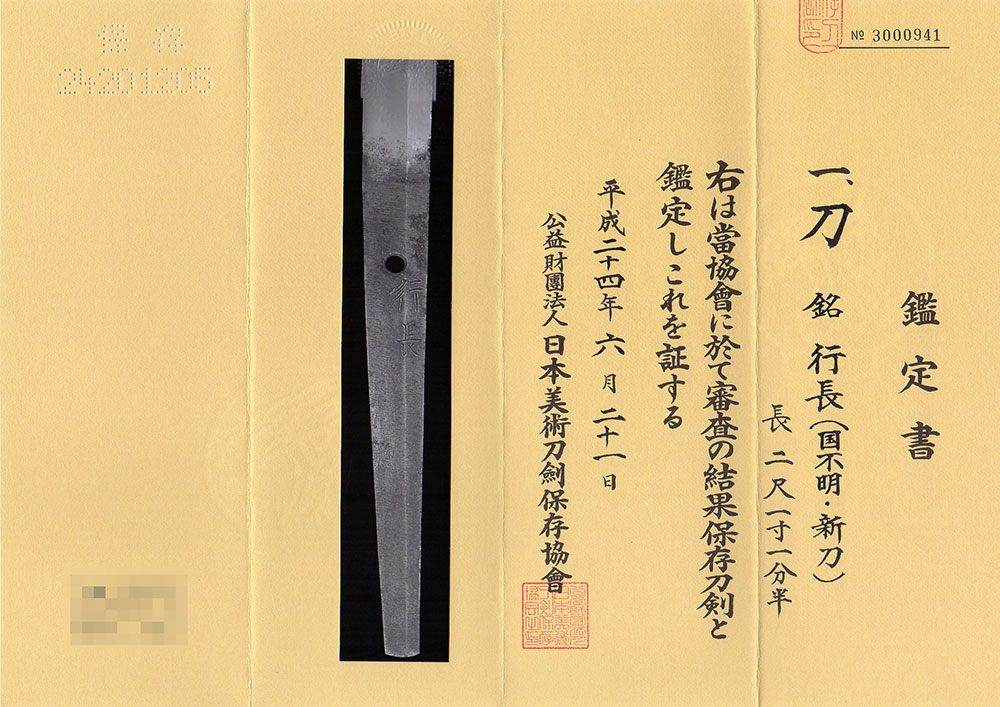 № 3000941
鑑定書
一、刀 銘 行長(国不明・新刀)
長 二尺一寸一分半
右は當協會に於て審査の結果保存刀剣と
鑑定しこれを証する
平成二十四年六月二十一日
公益財團法人日本美術刀劍保存協會
行長
保存
24201205